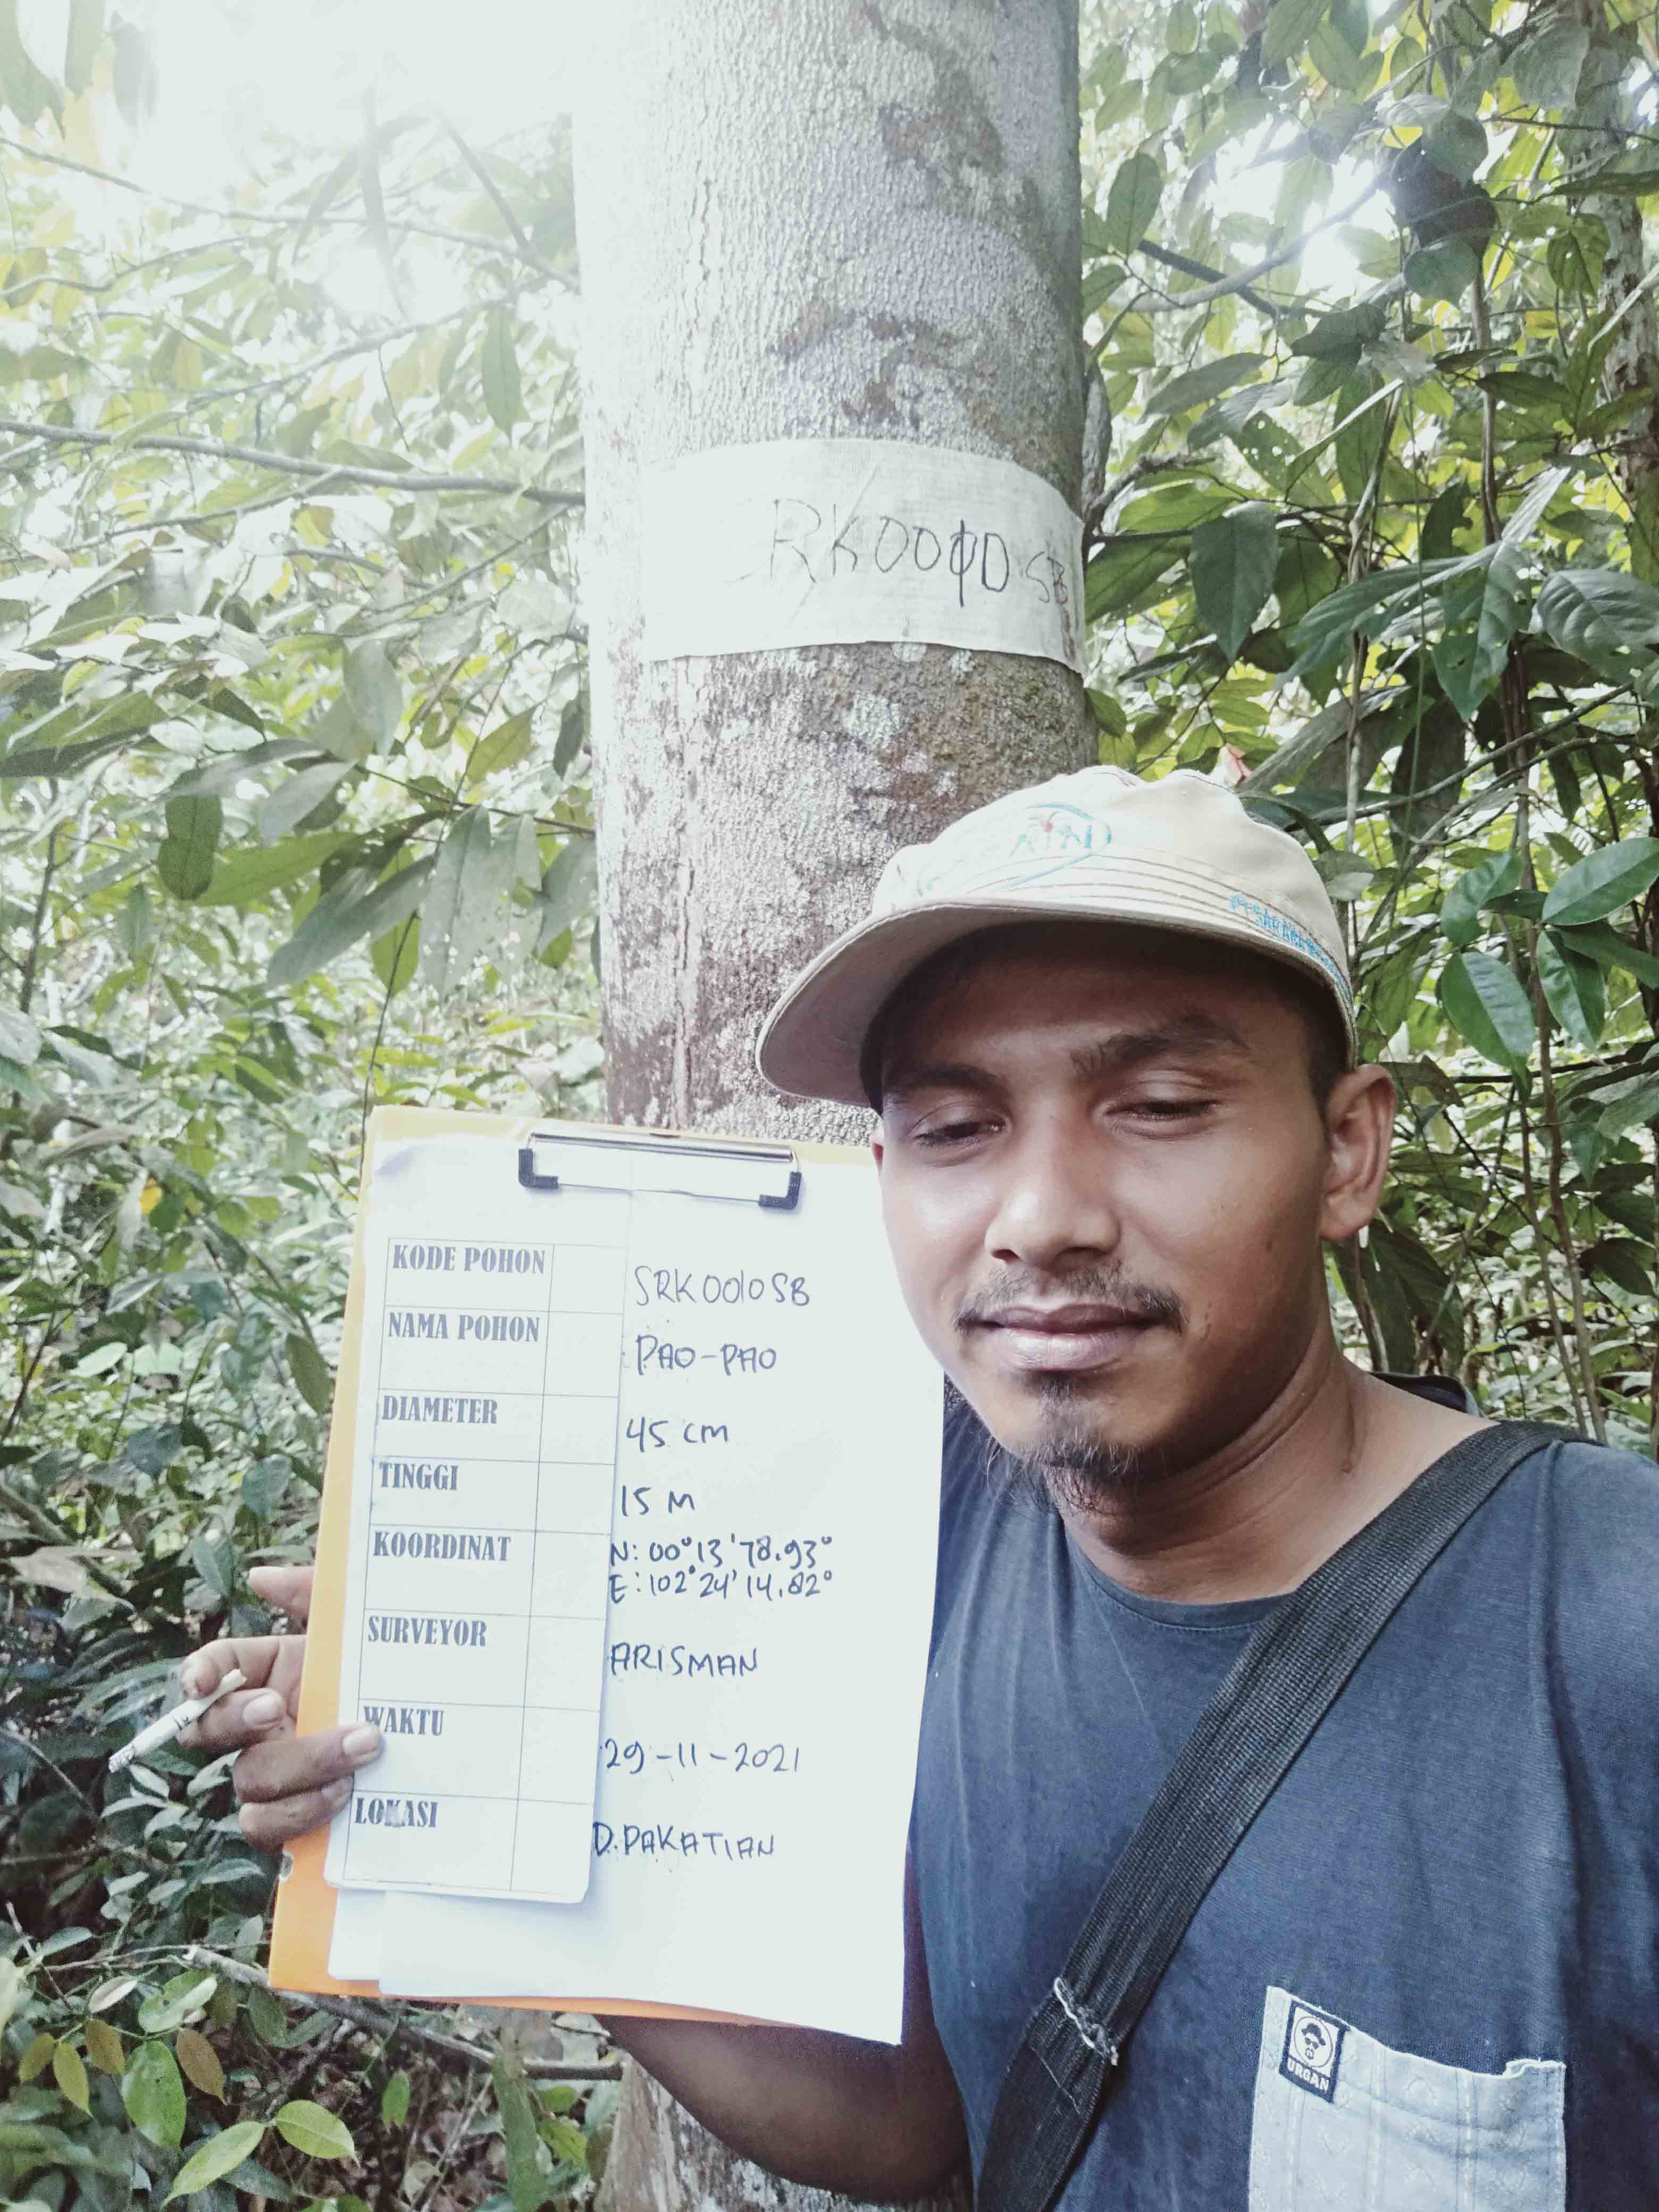 RK0010 SB
KODE POHON SRK0010SB
NAMA POHON : PAO-PAO
DIAMETER 45 CM
TINGGI 15 M
KOORDINAT N: 00°13'78.93°
E: 102°24'14.82°
SURVEYOR ARISMAN
WAKTU 29-11-2021
LOKASI D.PAKATIAN
URGAN